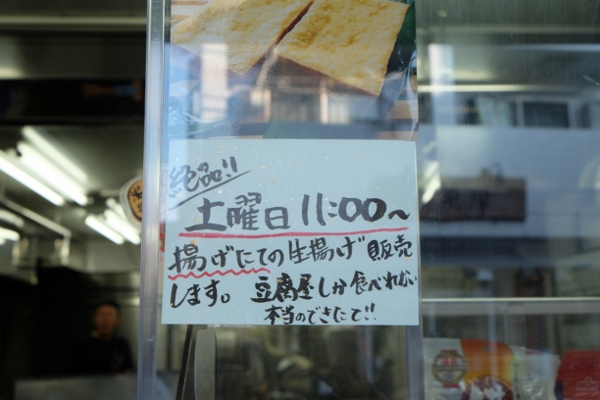 絶品!!
土曜日 11:00〜
揚げたての生揚げ販売
します。豆腐屋しか食べれない
本当のできたて!!